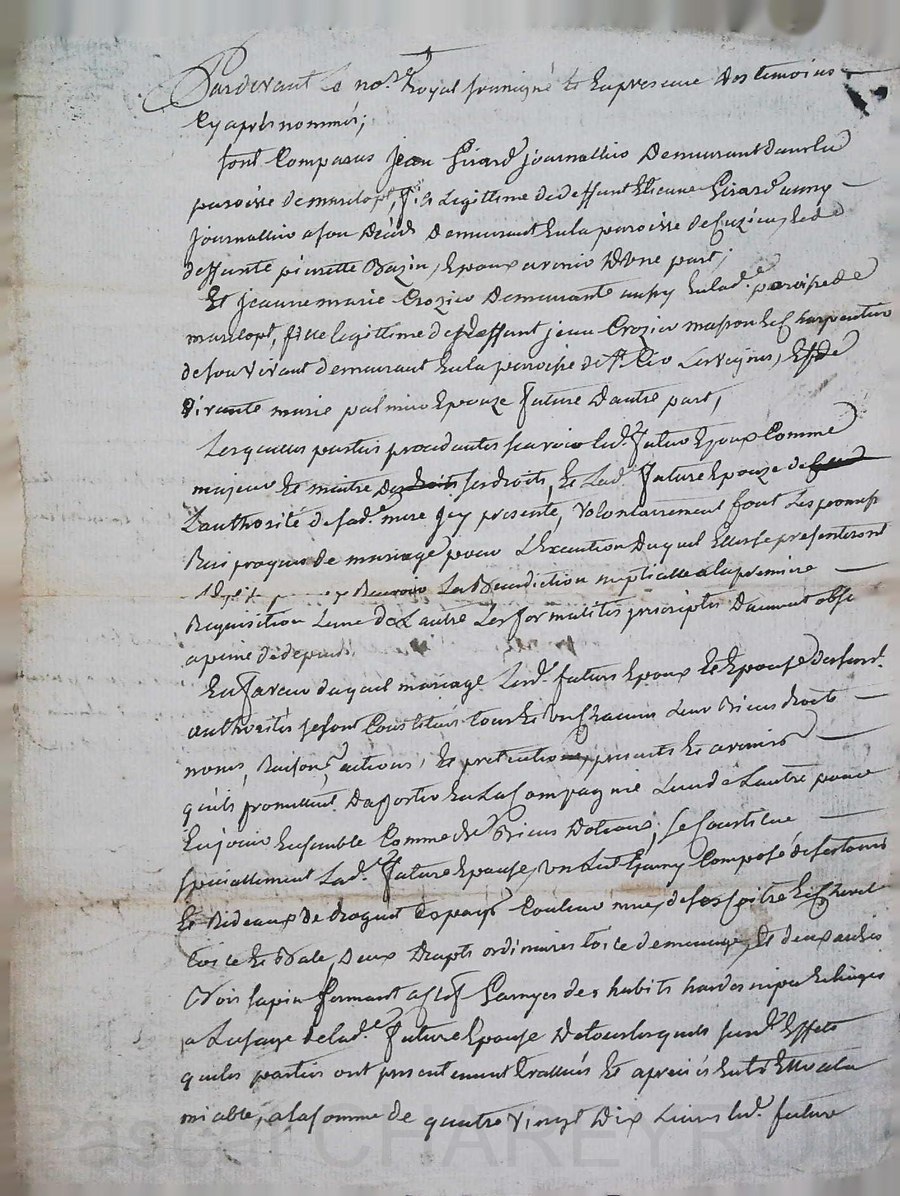 Pardevant le no.re Royal soussigné et En presence des temoins
Cy aprés nommés;
sont Comparus Jean Girard journallier Demeurant dans la
paroisse de marclopt, fils Legittime de deffunt Etienne Girard aussy
journallier a son Décéds Demeurant En la paroisse de Cuzieu, et de
deffunte pierrette Bazin, Epoux avenir D'Une part;
Et jeanne marie Crozier Demeurante aussy En lad.e paroisse de
marclopt, fille legittime de deffunt jean Crozier masson et Charpentier
de son Vivant demeurant En la paroisse de Les Veynes, Et de
Vivante marie palmier Epouze future D'autre part,
Lesquelles parties procedantes scavoir led. futur Epoux Comme
majeur Et maitre de ses droits, Et Lad.e future Epouze de
L'authorité de sad.e mere icy presente, Volontairement font Les promesses
Reciproques de mariage pour L'Execution Duquel Elles se presenteront
Recevoir La Benediction nuptialle a la premiere
Requisition L'une de L'autre Les formalités prescriptes Duement obse
a peine de depends.
En faveur duquel mariage Lesd. futurs Epoux Et Epouse
authorités se sont Constitués tous Et Un Chacuns Leur Biens droits
noms, Raisons, actions, Et pretentions, presents Et avenirs
qu'ils promettent D'aporter En La Compagnie L'un de L'autre pour
En jouir Ensemble Comme de Biens Dotaux; se Constitue
speciallement Lad.e future Epouse, Un Lit Garny Composé de ses tours
Et Rideaux de droguet du pays Couleur de sa Coitre Et Chevet
toile Et Bale, deux Draps ordinaires toile de menage, Et
Bois sapin fermant a Clef Garnye des habits hardes nipes Et linges
a L'usage de lad.e future Epouse De tous lesquels susd. Effets
que les parties ont presentement Evallués Et apreciés Entr'Elles a la
miable, a la somme de quatre Vingt Dix Livres led. futur
Pascal CHAREYRON